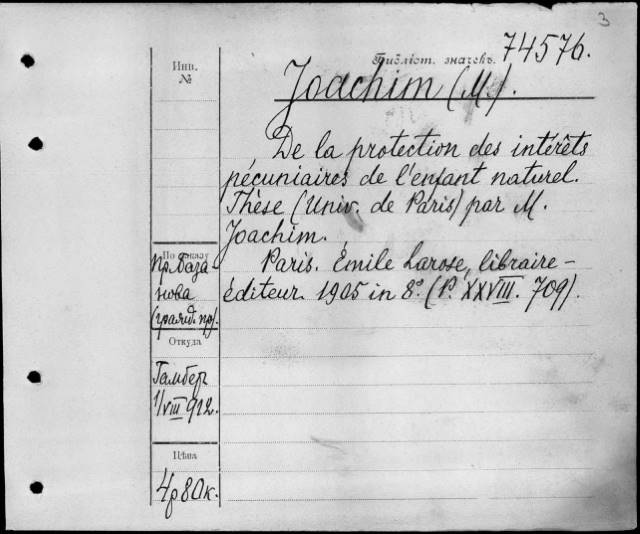 3
74576.
Библіот. значекъ.
Инв.
№
Joachim (M.).
De la protection des intérêts
pécuniaires de l'enfant naturel.
Thèse (Univ. de Paris) par M.
Joachim.
Paris. Émile Larose, libraire-
éditeur. 1905 in 8º. (P. XXVIII. 709).
По заказу
пр. База-
нова
(гражд. пр).
Откуда
Гамбер
1/VIII 912.
Цѣна
4р 80к.